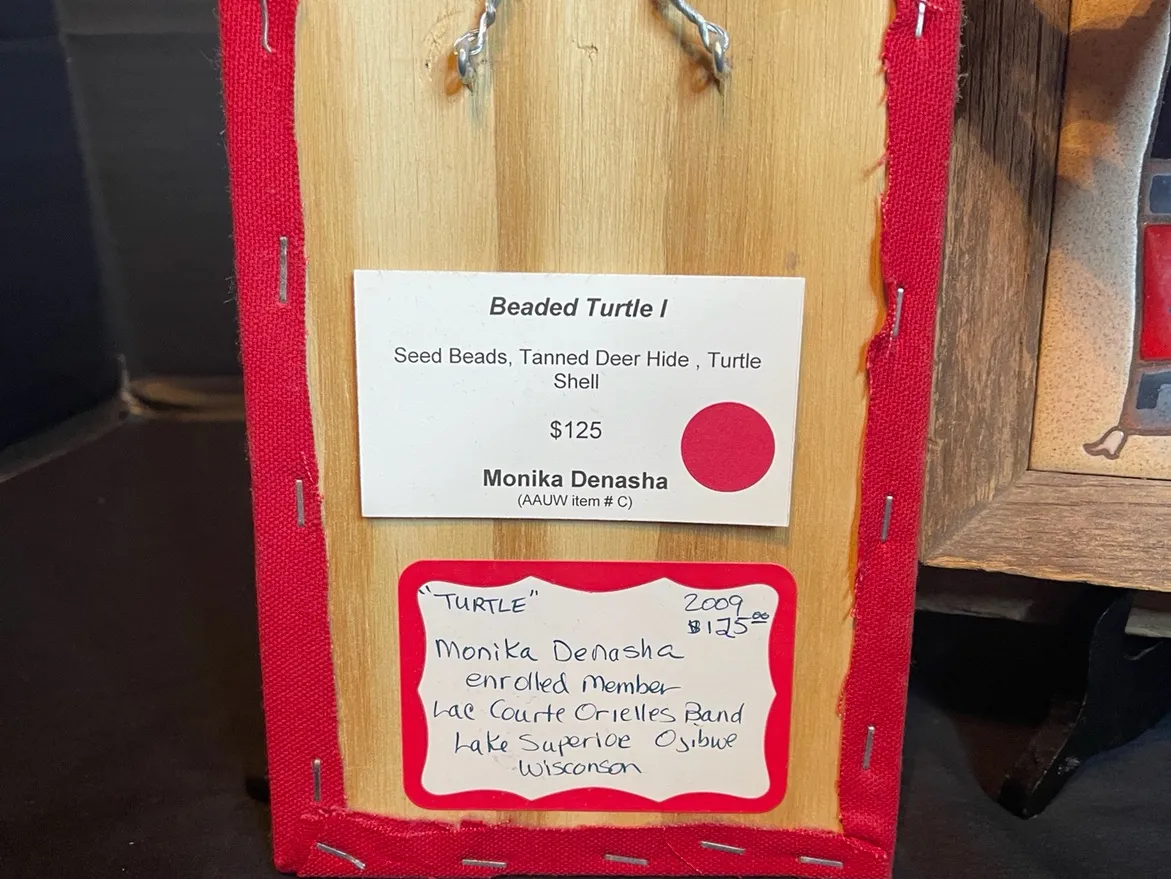 Beaded Turtle I
Seed Beads, Tanned Deer Hide , Turtle
Shell
$125
Monika Denasha
(AAUW item # C)
"TURTLE" 2009
$125.00
Monika Denasha
enrolled Member
Lac Courte Orielles Band
Lake Superior Ojibwe
Wisconson